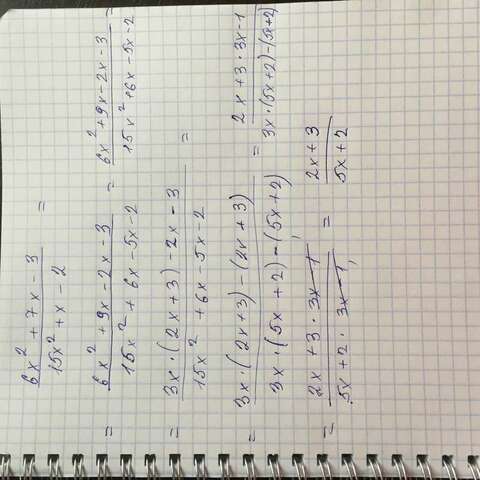 (6x² + 7x - 3)/(15x² + x - 2) =
= (6x² + 9x - 2x - 3)/(15x² + 6x - 5x - 2) = (6x² + 9x - 2x - 3)/(15x² + 6x - 5x - 2) =
= (3x · (2x + 3) - 2x - 3)/(15x² + 6x - 5x - 2) =
= (3x · (2x + 3) - (2x + 3))/(3x · (5x + 2) - (5x + 2)) = (2x + 3 · 3x - 1)/(3x · (5x + 2) - (5x + 2))
= (2x + 3 · 3x - 1)/(5x + 2 · 3x - 1) = (2x + 3)/(5x + 2)